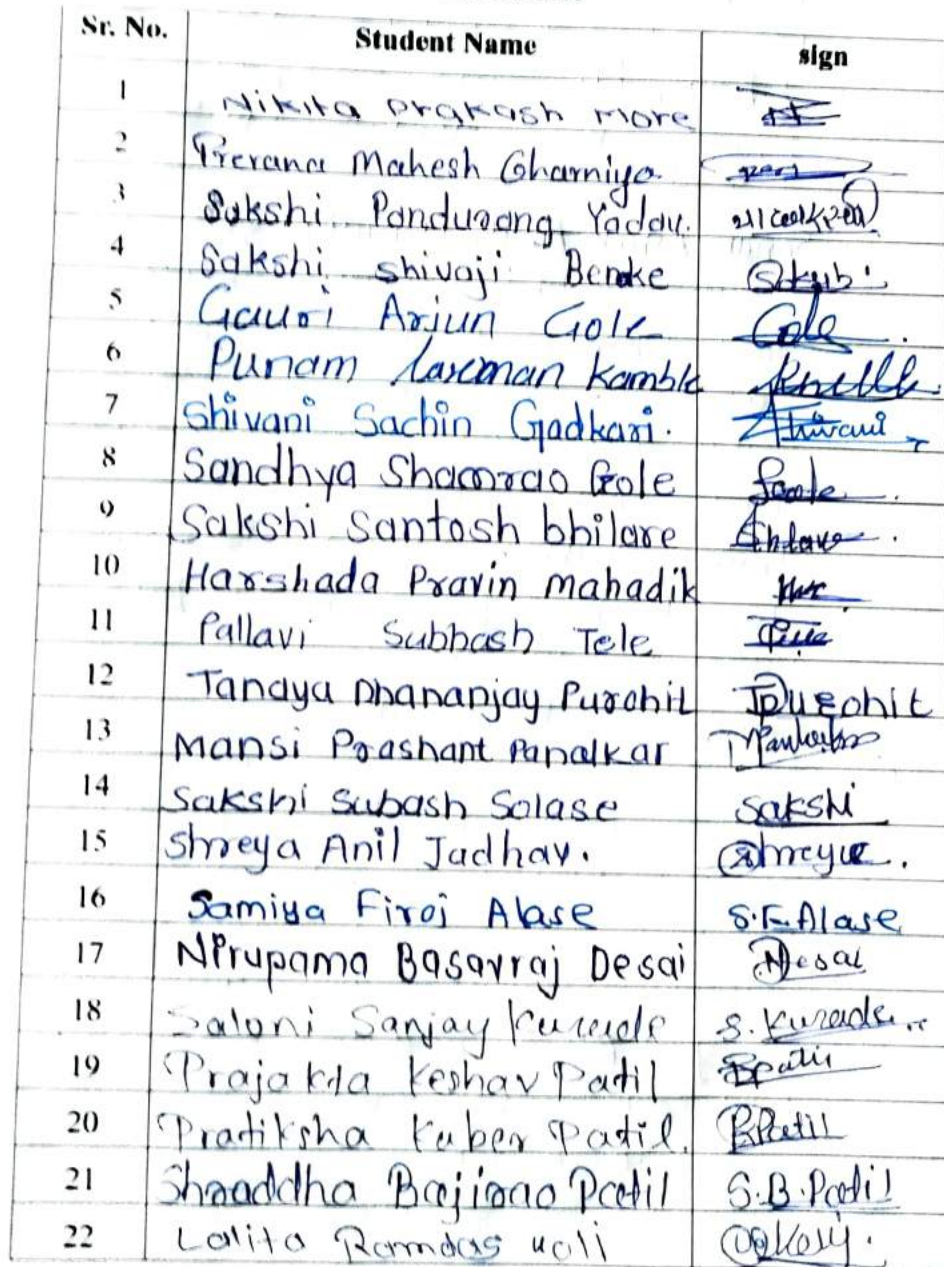 Sr. No. Student Name sign
1 Nikita Prakash More
2 Prerana Mahesh Ghamiya
3 Sakshi Pandurang Yadav.
4 Sakshi shivaji Benke Sakshi
5 Gauri Arjun Gole Gole.
6 Punam Laxman Kamble
7 Shivani Sachin Gadkari. Shivani
8 Sandhya Shamrao Gole
9 Sakshi Santosh bhilare
10 Harshada Pravin mahadik
11 Pallavi Subhash Tele
12 Tanaya Dhananjay Purohit TPurohit
13 Mansi Prashant Panalkar
14 Sakshi Subash Solase Sakshi
15 Shreya Anil Jadhav. Shreya.
16 Samiya Firoj Alase S.F.Alase
17 Nirupama Basavraj Desai NDesai
18 Saloni Sanjay Kurade S. Kurade..
19 Prajakta Keshav Patil
20 Pratiksha Kuber Patil. PPatil
21 Shraddha Bajirao Patil S.B.Patil
22 Lalita Ramdas Koli